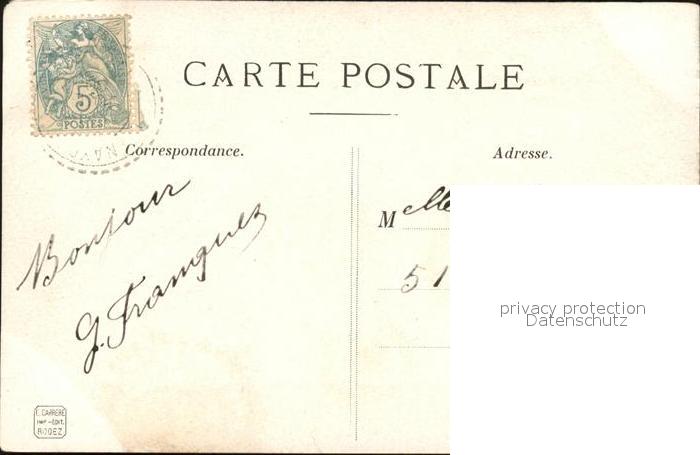 5
POSTES
CARTE POSTALE
Correspondance.
Adresse.
Bonjour
G. Franquez
Melle
51
privacy protection
Datenschutz
E. CARRERE
IMP-EDIT.
RODEZ